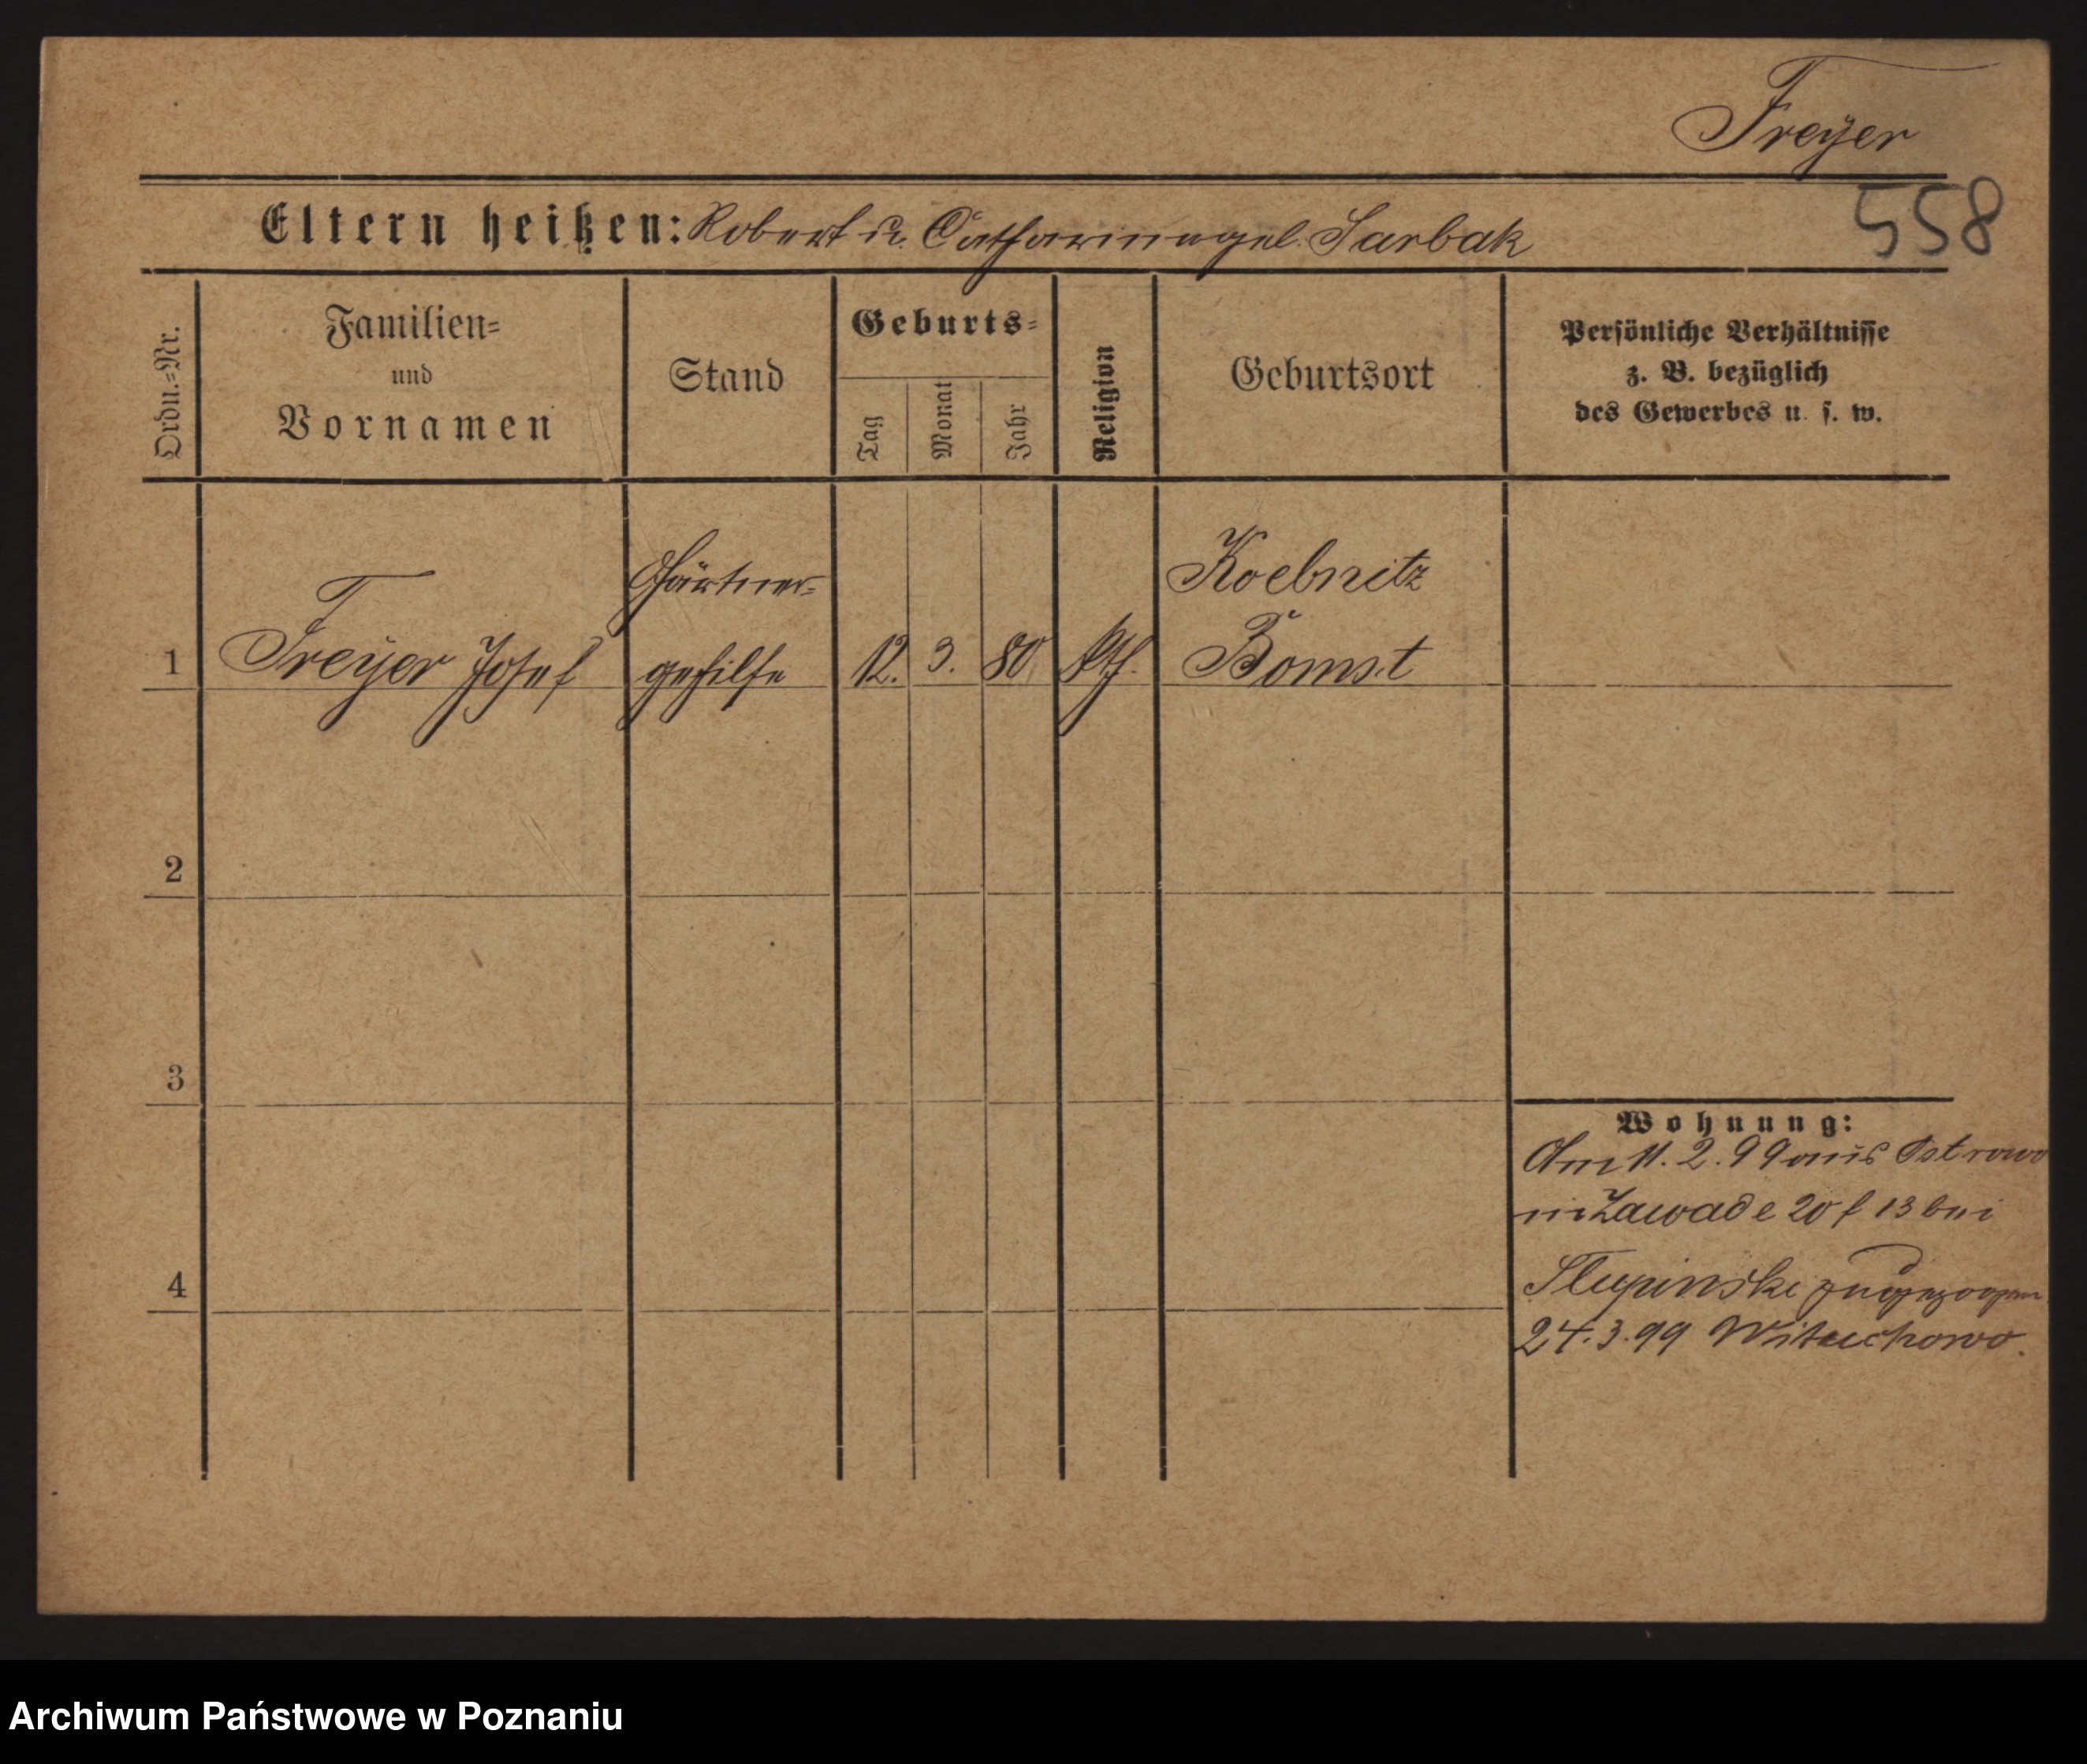 Freyer
558
Eltern heißen: Robert u. Catharina geb. Sarbak
Ordn.=Nr.
Familien=
und
Vornamen
Stand
Geburts=
Tag
Monat
Jahr
Religion
Geburtsort
Persönliche Verhältnisse
z. B. bezüglich
des Gewerbes u. s. w.
1
Freyer Josef
Gärtner=
gehilfe
12. 3. 80
kth.
Koebnitz
Bomst
2
3
4
Wohnung:
Am 11. 2. 99 aus Ostrowo
Zawade 20 f 13 bei
Slupinski zugezogen
24. 3. 99 Wituchowo.
Archiwum Państwowe w Poznaniu